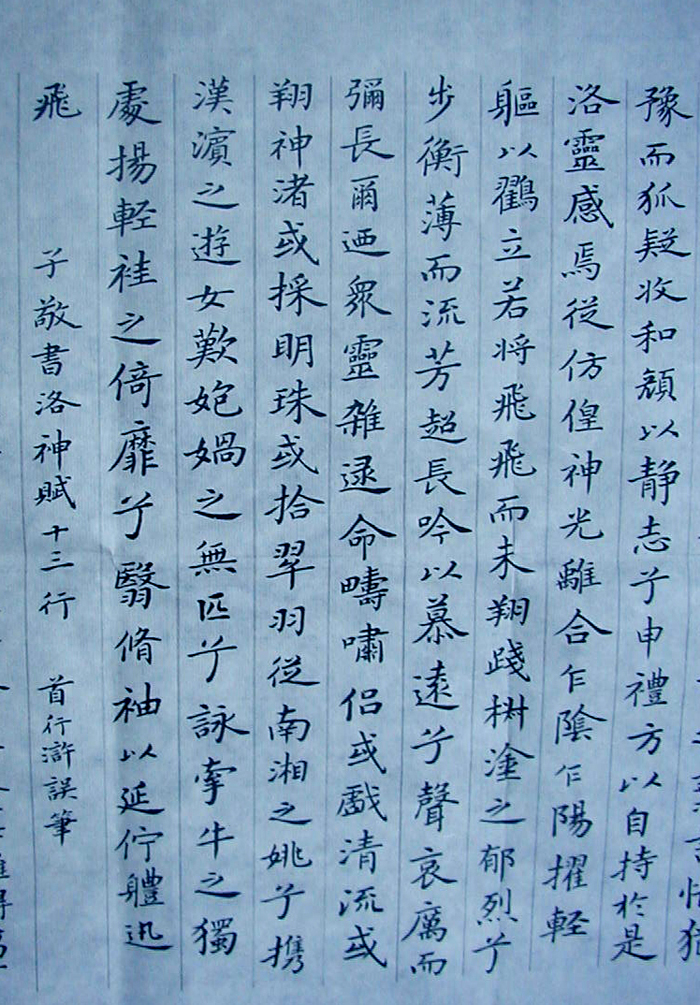 情猶
豫而狐疑收和顏以静志兮申禮方以自持於是
洛靈感焉從仿偟神光離合乍陰乍陽擢軽
軀以鸖立若将飛飛而未翔踐椒塗之郁烈兮
步衡薄而流芳超長吟以慕遠兮聲哀厲而
彌長爾迺眾靈雜遝命疇嘯侣或戲清流或
翔神渚或採明珠或拾翠羽從南湘之姚兮携
漢濱之遊女歎匏媧之無匹兮詠牽牛之獨
處揚軽袿之倚靡兮翳脩袖以延佇軆迅
飛
子敬書洛神賦十三行 首行滸誤筆